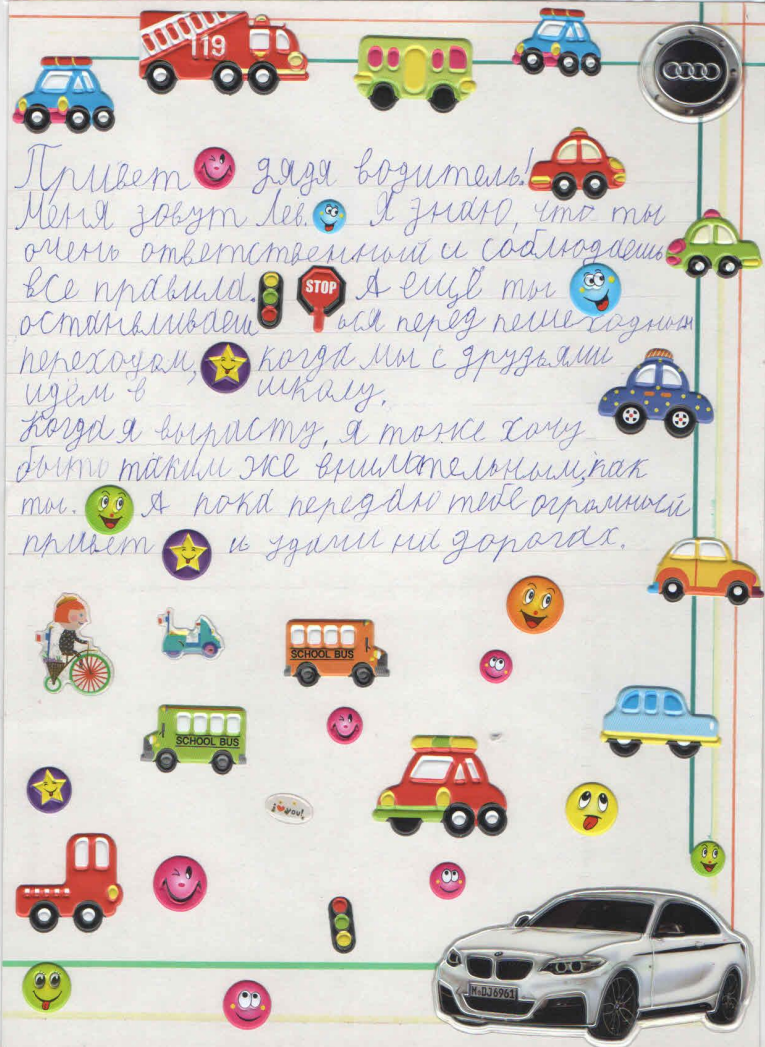 119
Привет дядя водитель!
Меня зовут Лев. Я знаю, что ты
очень ответственный и соблюдаешь
все правила. STOP А ещё ты
останвливаешься перед пешеходным
переходом, когда мы с друзьями
идём в школу.
Когда я вырасту, я тоже хочу
быть таким же внимательным, как
ты. А пока передаю тебе огромный
привет и удачи на дорогах.
SCHOOL BUS
SCHOOL BUS
i you!
M DJ6961